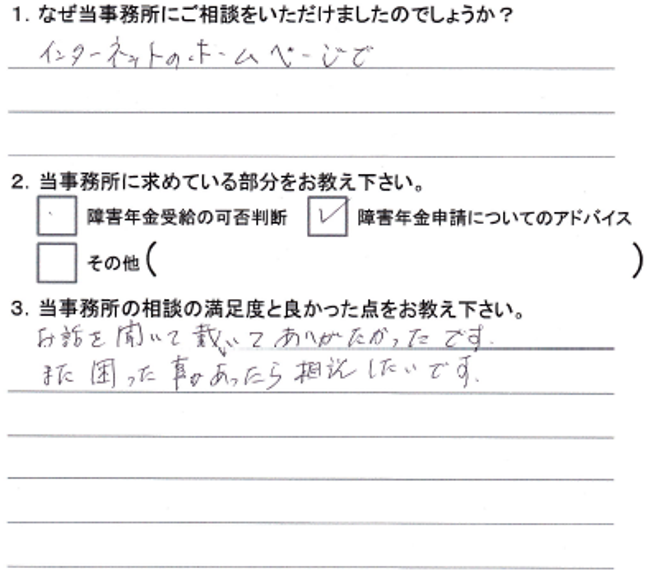 1. なぜ当事務所にご相談をいただけましたのでしょうか？
インターネットのホームページで
2. 当事務所に求めている部分をお教え下さい。
障害年金受給の可否判断 ✓ 障害年金申請についてのアドバイス
その他（ ）
3. 当事務所の相談の満足度と良かった点をお教え下さい。
お話を聞いて戴いてありがたかったです.
また困った事があったら相談したいです.